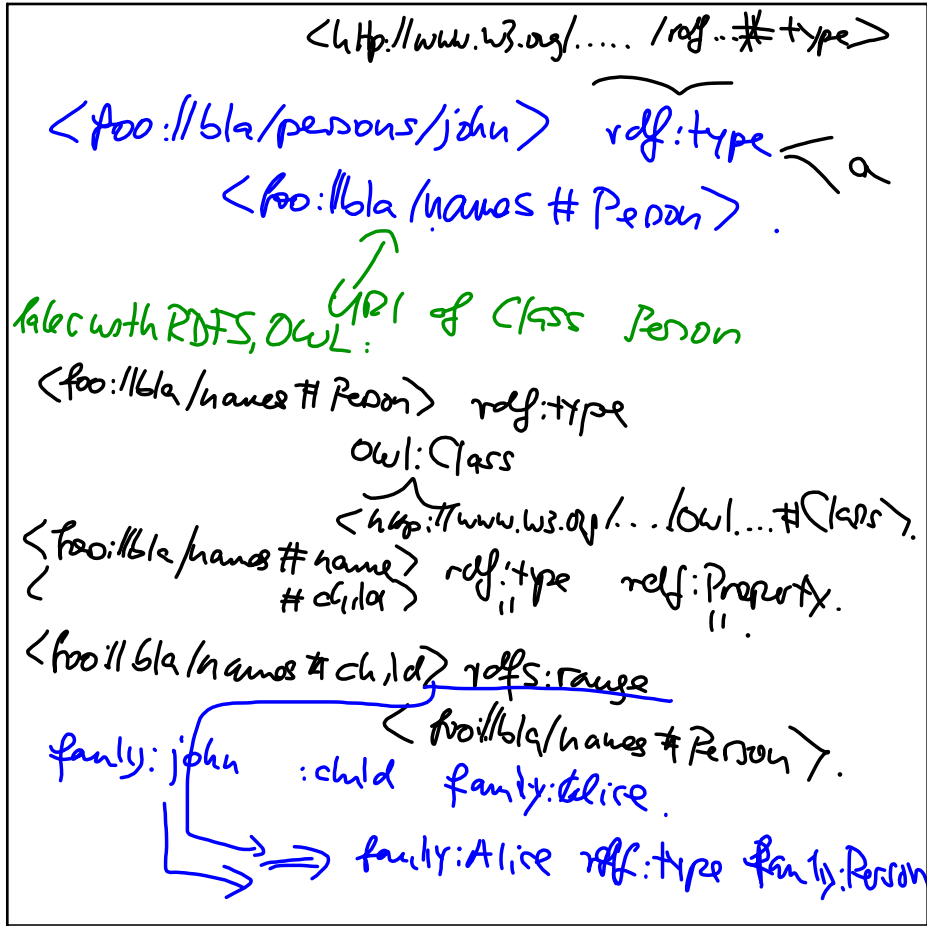 <http://www.w3.org/..... /rdf...#type>
<foo://bla/persons/john> rdf:type < a
<foo://bla/names # Person> .
URI of Class Person
later with RDFS, OWL:
<foo://bla/names # Person> rdf:type
owl:Class
<http://www.w3.org/..../owl....#Class>.
<foo://bla/names # name> rdf:type rdf:Property.
< # child> " " .
<foo://bla/names # child> rdfs:range
<foo://bla/names # Person>.
family:john :child family:Alice.
⇒ family:Alice rdf:type family:Person